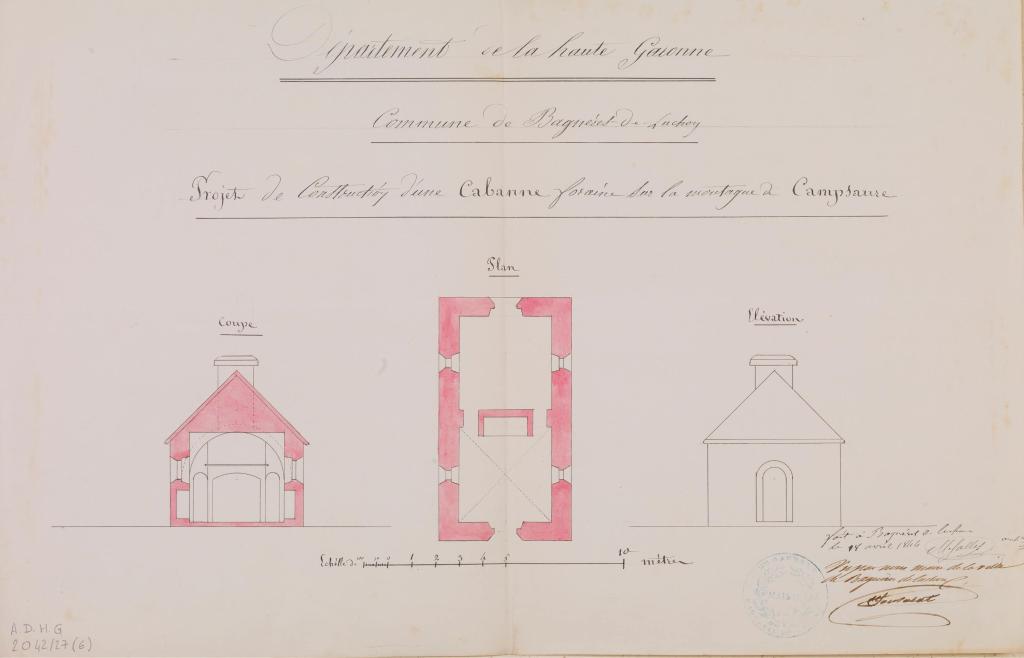 Département de la haute Garonne
Commune de Bagnères-de-Luchon
Projet de Construction d'une Cabanne foraine sur la montagne de Campsaure
Plan
Coupe
Elévation
Echelle de
1 2 3 4 5 10 mètres
fait à Bagnères de Luchon
le 18 avril 1846
Vu par nous maire de la ville
de Bagnères de Luchon
A.D.H.G
2042/27(6)